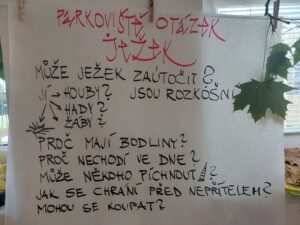 PARKOVIŠTĚ OTÁZEK
JEŽEK
MŮŽE JEŽEK ZAÚTOČIT?
JÍ → HOUBY? JSOU ROZKOŠNÍ
HADY?
ŽÁBY?
PROČ MAJÍ BODLINY?
PROČ NECHODÍ VE DNE?
MŮŽE NĚKOHO PÍCHNOUT?
JAK SE CHRÁNÍ PŘED NEPŘÍTELEM?
MOHOU SE KOUPAT?